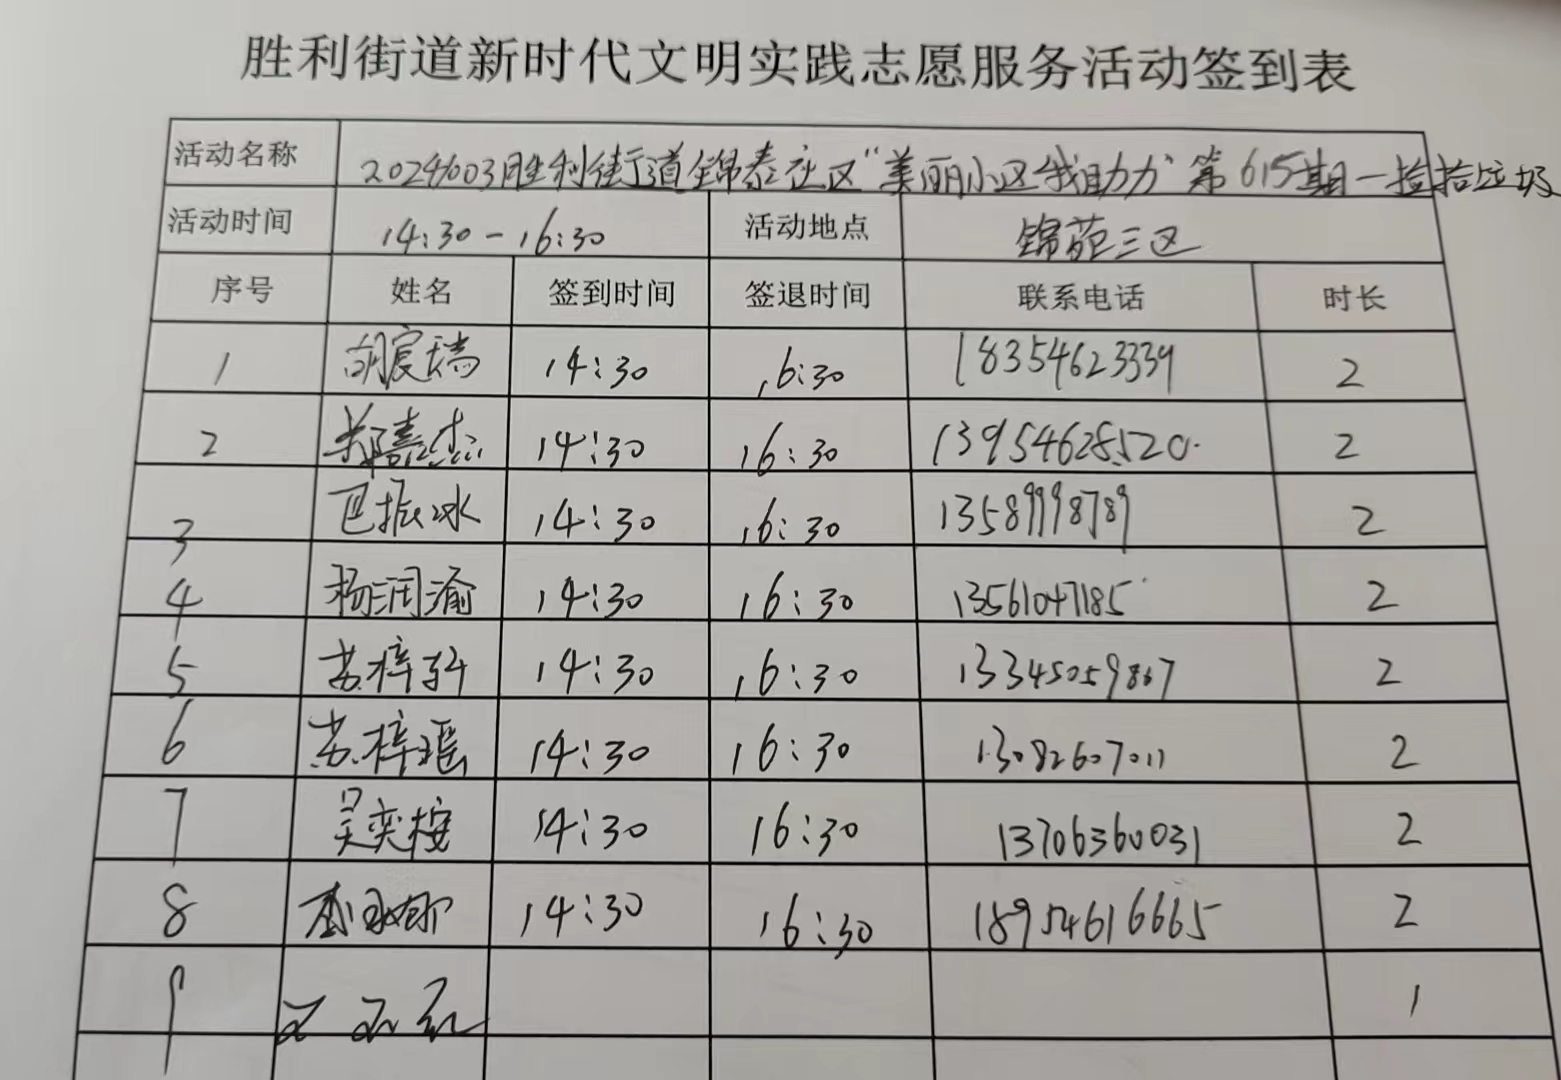 胜利街道新时代文明实践志愿服务活动签到表
活动名称 20241003胜利街道锦泰社区“美丽小区我助力”第615期一捡拾垃圾
活动时间 14:30-16:30 活动地点 锦苑三区
序号 姓名 签到时间 签退时间 联系电话 时长
1 胡宸瑞 14:30 16:30 18354623339 2
2 郑嘉杰 14:30 16:30 13954628520 2
3 巴振冰 14:30 16:30 13589998789 2
4 杨润渝 14:30 16:30 13561047185 2
5 苏梓轩 14:30 16:30 13345059867 2
6 苏梓瑶 14:30 16:30 13082607011 2
7 吴奕桉 14:30 16:30 13706360031 2
8 14:30 16:30 18954616665 2
9 1